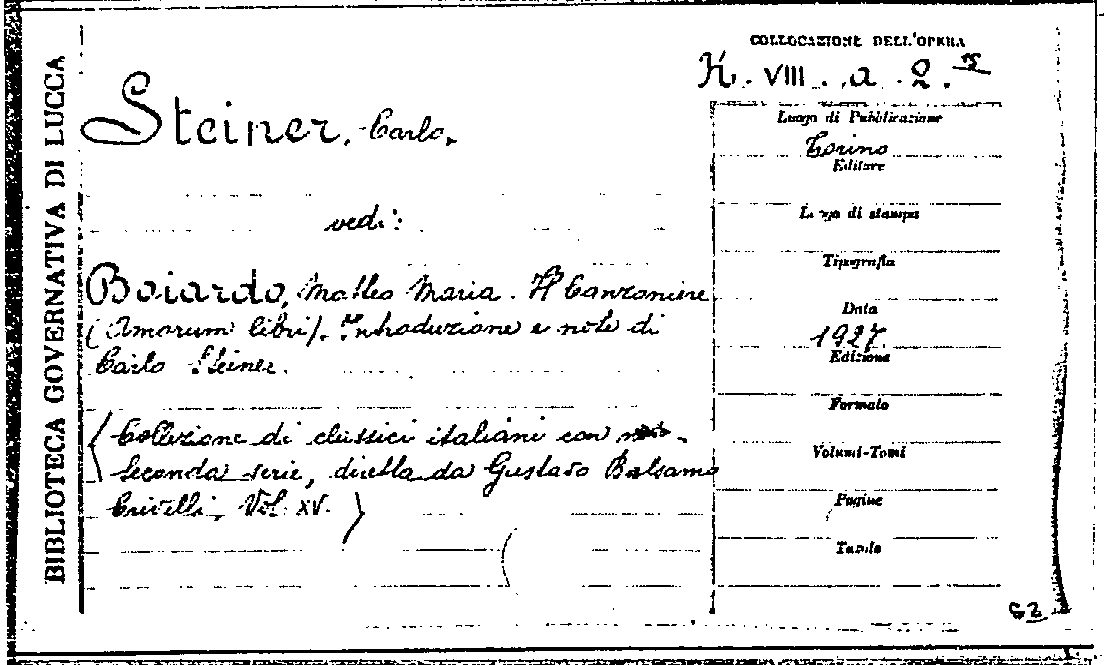 BIBLIOTECA GOVERNATIVA DI LUCCA
COLLOCAZIONE DELL'OPERA
K. VIII. a. 2. 15
Steiner, Carlo,
vedi:
Boiardo, Matteo Maria. Il Canzoniere
(Amorum libri). Introduzione e note di
Carlo Steiner.
(Collezione di classici italiani con note.
Seconda serie, diretta da Gustavo Balsamo
Crivelli, Vol. XV.)
Luogo di Pubblicazione
Torino
Editore
Luogo di stampa
Tipografia
Data
1927.
Edizione
Formato
Volumi-Tomi
Pagine
Tavole